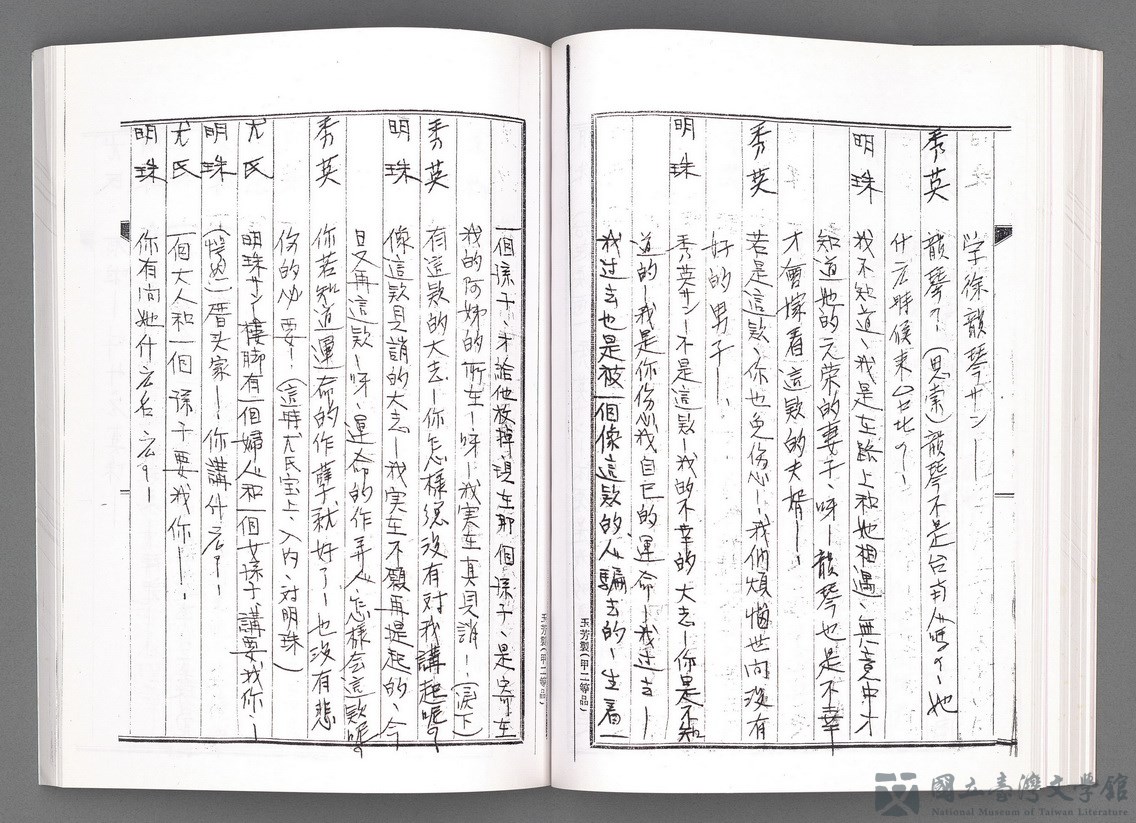 学徐韻琴サン——
秀英 韻琴？（思索）韻琴不是台南人嗎？、她
什広時候来台北？——
明珠 我不知道、我是在路上和她相遇、無意中才
知道她的元荣的妻子、呀——韻琴也是不幸
才會嫁着這欵的夫婿——、
秀英 若是這欵、你也免伤心——、我們煩惱世间没有
好的男子——、
明珠 秀英サン——不是這欵——我的不幸的大志——你是不知
道的——我是你伤心我自己的運命——我过去——
我过去也是被一個像這欵的人騙去的——生着一
一個孩子、才給他放掉現在那個孩子、是寄在
我的阿姊的所在——呀——我実在真見誚——（淚下）
秀英 有這欵的大志——你怎樣總没有对我講起呢？
明珠 像這欵見誚的大志——我実在不願再提起的、今
日又再這欵——呀、運命的作弄人、怎樣会這欵呢？
秀英 你若知道運命的作孽就好了——也没有悲
伤的必要——（這時尤氏宝上、入内、对明珠）
尤氏 明珠サン——樓脚有一個婦人和一個女孩子、講要找你、——
明珠 （愕然）厝头家——、你講什広？——
尤氏 一個大人和一個孩子要找你——、
明珠 你有问她什広名広？——
玉芳製（甲二等品）
玉芳製（甲二等品）
國立臺灣文學館
National Museum of Taiwan Literature